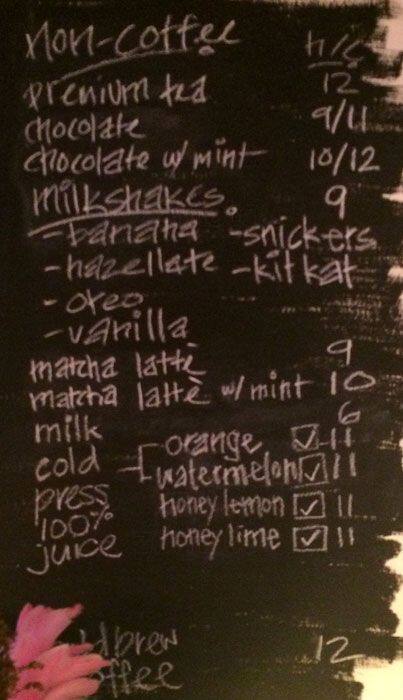 non-coffee h/c
premium tea 12
chocolate 9/11
chocolate w/ mint 10/12
milkshakes. 9
-banana -snickers
-hazellate -kitkat
- oreo
-vanilla
matcha lattè 9
matcha lattè w/ mint 10
milk 6
cold orange 11
press watermelon 11
100% honey lemon 11
juice honey lime 11
brew 12